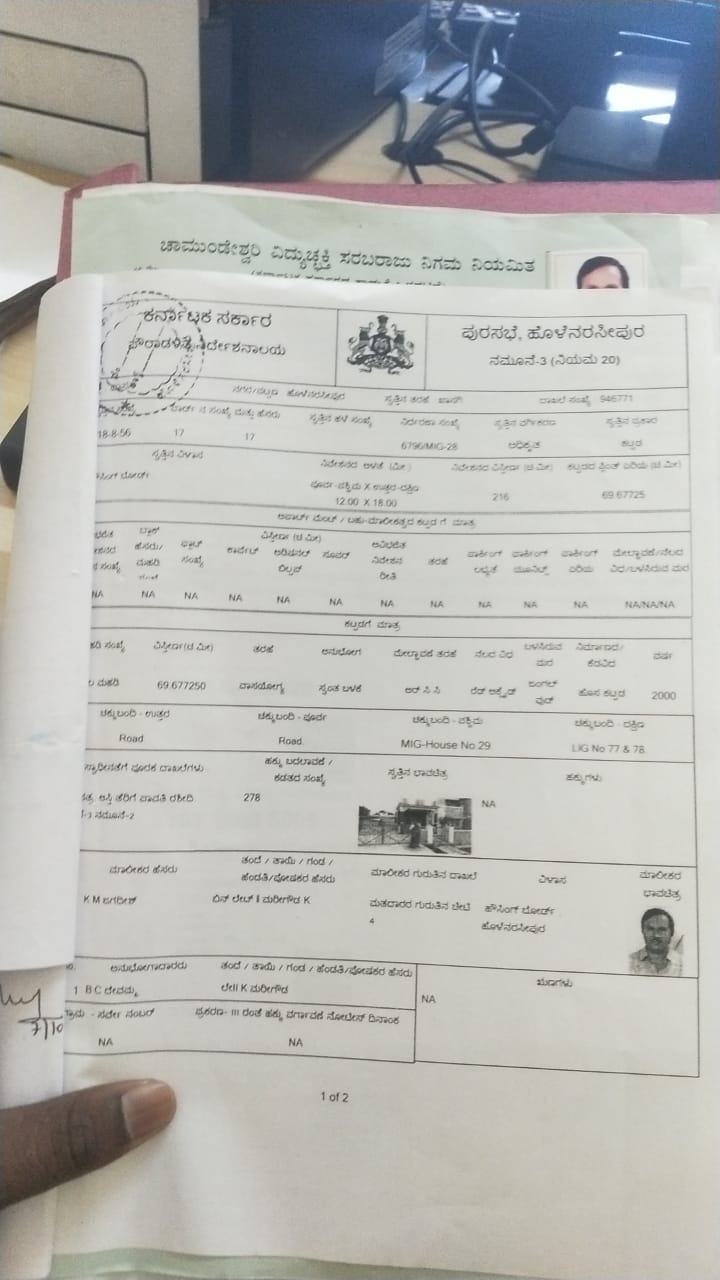 ಚಾಮುಂಡೇಶ್ವರಿ ವಿದ್ಯುಚ್ಛಕ್ತಿ ಸರಬರಾಜು ನಿಗಮ ನಿಯಮಿತ
ಕರ್ನಾಟಕ ಸರ್ಕಾರ
ಪೌರಾಡಳಿತ ನಿರ್ದೇಶನಾಲಯ
ಪುರಸಭೆ, ಹೊಳೆನರಸೀಪುರ
ನಮೂನೆ-3 (ನಿಯಮ 20)
ನಗರ/ಪಟ್ಟಣ ಹೊಳೆನರಸೀಪುರ ಸ್ವತ್ತಿನ ತರಹ ಖಾಸಗಿ ದಾಖಲೆ ಸಂಖ್ಯೆ 946771
ವಾರ್ಡ್ ನ ಸಂಖ್ಯೆ ಮತ್ತು ಹೆಸರು ಸ್ವತ್ತಿನ ಹಳೆ ಸಂಖ್ಯೆ ನಿರ್ಧರಣಾ ಸಂಖ್ಯೆ ಸ್ವತ್ತಿನ ವರ್ಗೀಕರಣ ಸ್ವತ್ತಿನ ಪ್ರಕಾರ
18-8-56 17 17 6796/MIG-28 ಅಧಿಕೃತ ಕಟ್ಟಡ
ಸ್ವತ್ತಿನ ವಿಳಾಸ ನಿವೇಶನದ ಅಳತೆ (ಮೀ) ನಿವೇಶನದ ವಿಸ್ತೀರ್ಣ (ಚ ಮೀ) ಕಟ್ಟಡದ ಪ್ಲಿಂತ್ ಏರಿಯ (ಚ ಮೀ)
ಸಿಂಗ್ ಬೋರ್ಡ್ ಪೂರ್ವ-ಪಶ್ಚಿಮ X ಉತ್ತರ-ದಕ್ಷಿಣ
12.00 X 18.00 216 69.67725
ಅಪಾರ್ಟ್ ಮೆಂಟ್ / ಬಹು-ಮಾಲೀಕತ್ವದ ಕಟ್ಟಡ ಗೆ ಮಾತ್ರ
ಬ್ಲಾಕ್ ವಿಸ್ತೀರ್ಣ (ಚ ಮೀ) ಅವಿಭಜಿತ
ಹೆಸರು/ ಫ್ಲಾಟ್ ಕಾರ್ಪೆಟ್ ಅಡಿಷನಲ್ ಸೂಪರ್ ನಿವೇಶನ ತರಹೆ ಪಾರ್ಕಿಂಗ್ ಪಾರ್ಕಿಂಗ್ ಪಾರ್ಕಿಂಗ್ ಮೇಲ್ಛಾವಣಿ/ನೆಲದ
ಸಂಖ್ಯೆ ಮಹಡಿ ಸಂಖ್ಯೆ ಬಿಲ್ಟಪ್ ರೀತಿ ಲಭ್ಯತೆ ಯೂನಿಟ್ಸ್ ಏರಿಯ ವಿಧ/ಬಳಸಿರುವ ಮರ
NA NA NA NA NA NA NA NA NA NA NA NA/NA/NA
ಕಟ್ಟಡಗೆ ಮಾತ್ರ
ಸಂಖ್ಯೆ ವಿಸ್ತೀರ್ಣ(ಚ ಮೀ) ತರಹೆ ಅನುಭೋಗ ಮೇಲ್ಛಾವಣಿ ತರಹೆ ನೆಲದ ವಿಧ ಬಳಸಿರುವ ಮರ ನಿರ್ಮಾಣದ/ ಕೆಡವಿದ ವರ್ಷ
ಮಹಡಿ 69.677250 ವಾಸಯೋಗ್ಯ ಸ್ವಂತ ಬಳಕೆ ಆರ್ ಸಿ ಸಿ ರೆಡ್ ಆಕ್ಸೈಡ್ ಜಂಗಲ್ ವುಡ್ ಹೊಸ ಕಟ್ಟಡ 2000
ಚಕ್ಕುಬಂದಿ - ಉತ್ತರ ಚಕ್ಕುಬಂದಿ - ಪೂರ್ವ ಚಕ್ಕುಬಂದಿ - ಪಶ್ಚಿಮ ಚಕ್ಕುಬಂದಿ - ದಕ್ಷಿಣ
Road Road MIG-House No 29 LIG No 77 & 78
ಸ್ವಾಧೀನತೆಗೆ ಪೂರಕ ದಾಖಲೆಗಳು ಹಕ್ಕು ಬದಲಾವಣೆ / ಕಡತದ ಸಂಖ್ಯೆ ಸ್ವತ್ತಿನ ಭಾವಚಿತ್ರ ಹಕ್ಕುಗಳು
ಆಸ್ತಿ ತೆರಿಗೆ ಪಾವತಿ ರಶೀದಿ 278 NA
ನಮೂನೆ-2
ಮಾಲೀಕರ ಹೆಸರು ತಂದೆ / ತಾಯಿ / ಗಂಡ / ಹೆಂಡತಿ/ಪೋಷಕರ ಹೆಸರು ಮಾಲೀಕರ ಗುರುತಿನ ದಾಖಲೆ ವಿಳಾಸ ಮಾಲೀಕರ ಭಾವಚಿತ್ರ
K M ಜಗದೀಶ್ ಬಿನ್ ಲೇಟ್ ಮರೀಗೌಡ K ಮತದಾರರ ಗುರುತಿನ ಚೀಟಿ ಹೌಸಿಂಗ್ ಬೋರ್ಡ್
4 ಹೊಳೆನರಸೀಪುರ
ಅನುಭೋಗದಾರರು ತಂದೆ / ತಾಯಿ / ಗಂಡ / ಹೆಂಡತಿ/ಪೋಷಕರ ಹೆಸರು ಋಣಗಳು
1 B C ದೇವಮ್ಮ K ಮರೀಗೌಡ NA
- ಸರ್ವೇ ನಂಬರ್ ಪ್ರಕರಣ- III ರಂತೆ ಹಕ್ಕು ವರ್ಗಾವಣೆ ನೋಟೀಸ್ ದಿನಾಂಕ
NA NA
7/10
1 of 2